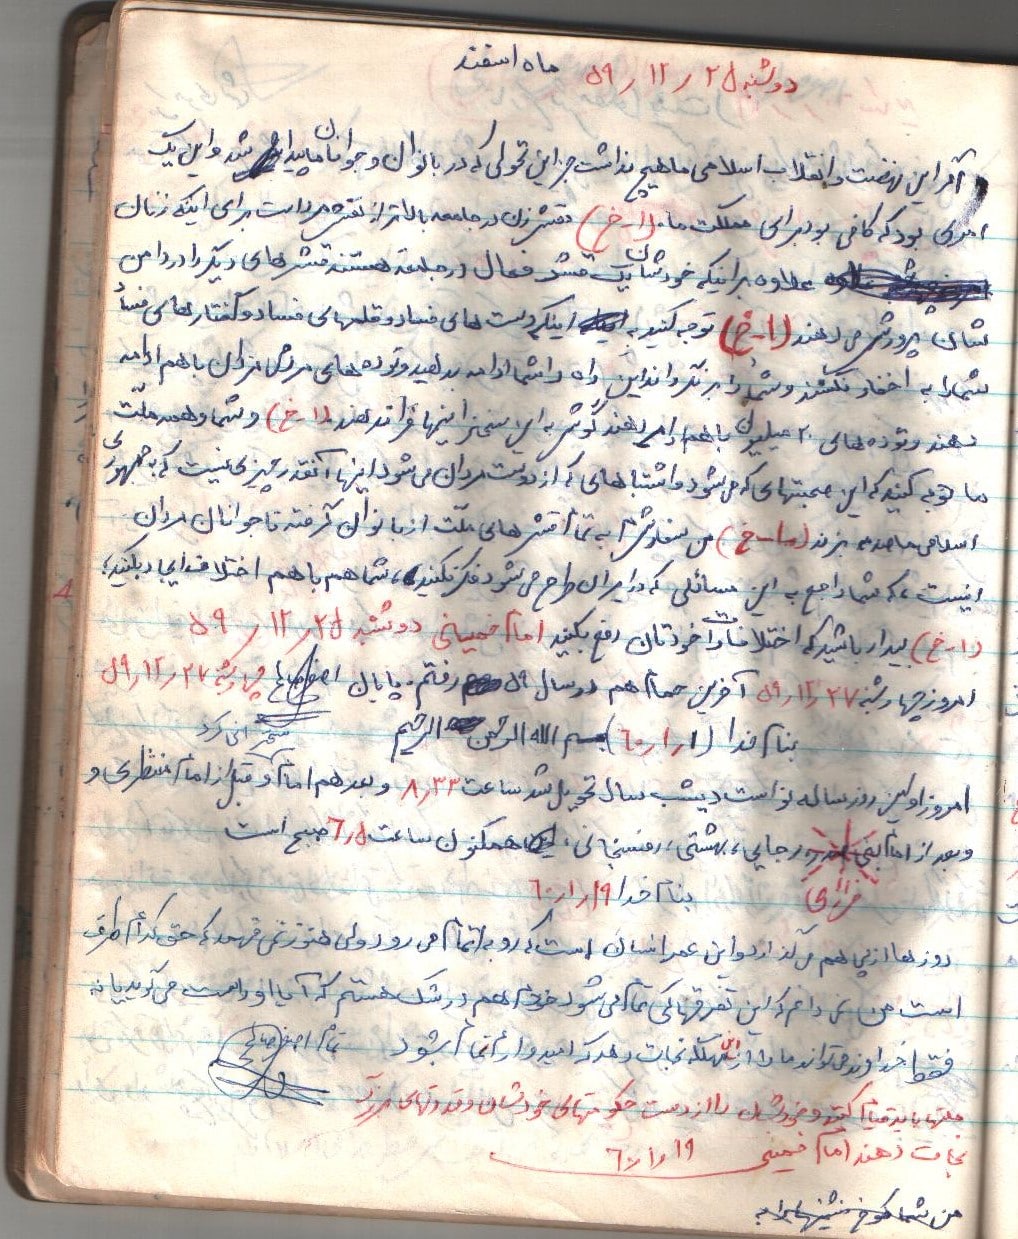 دوشنبه ۲۵ ر ۱۲ ر ۵۹ ماه اسفند
اگر این نهضت و انقلاب اسلامی ما هیچ نداشت جز این تحولی که در بانوان و جوانان ما پیدا شد و این یک
امری بود که کافی بود برای مملکت ما. (ا-خ) نقش زن در جامعه بالاتر از نقش مرد است برای اینکه زنان
علاوه بر اینکه خودشان یک قشر فعال در جامعه هستند قشرهای دیگر را در دامن
شان پرورش می دهند (ا-خ) توجه کنید به اینکه دست های فساد و قلمهای فساد و گفتارهای فساد
شما را به اغفال نکشند و شما را بر نگردانند این راه را شما ادامه بدهید و توده های مردان با هم ادامه
دهند و توده های ۲۰ میلیون با هم گوش به این سخنان اینها فرا ندهند (ا-خ) و شما و همه ملت
ما توجه کنید که این صحبتهای که می شود و اشتباهای که از دوست مردان می شود اینها آنقدر چیزی نیست که به جمهوری
اسلامی ما صدمه بزند (ا-خ) من سفارشم به تمام قشرهای ملت از بانوان گرفته تا جوانان مردان
اینست، که شما راجع به این مسائلی که در ایران طرح می شود فکر نکنید، شما هم با هم اختلاف ایجاد بکنید،
(ا-خ) بیدار باشید که اختلافات را خودتان رفع بکنید امام خمینی دوشنبه ۲۵ ر ۱۲ ر ۵۹
امروز چهارشنبه ۲۷ر۱۲ر۵۹ آخرین حمام هم در سال ۵۹ رفتم. پایان اصغر صالح چهارشنبه ۲۷ر۱۲ر۵۹
بنام خدا (۱ر۱ر۶۰) بسم الله الرحمن الرحیم سخنرانی کرد
امروز اولین روز سال نو است دیشب سال تحویل شد ساعت ۸٫۳۳ و بعد هم امام و قبل از امام منتظری و
و بعد از امام بنی صدر رجایی، بهشتی، رفسنجانی، همکنون ساعت ۶٫۵ صبح است
بنام خدا ۱۹ر۱ر۶۰
روزها از پی هم می گذرد و این عمر انسان است که رو به اتمام می رود ولی هنوز نمی فهمد که حق کدام طرف
است من نمی دانم که این تفرقه کی تمام می شود خودم هم در شک هستم که آیا او راست می گوید یا نه
فقط خداوند می تواند ما را از این مهلکه نجات دهد که امیدوارم تمام شود تمام اصغر صالح
ملتها باید قیام کنند و خودشان را از دست حکومتهای خودشان و قدرتهای بزرگ
نجات دهند امام خمینی ۱۹ر۱ر۶۰
من شما